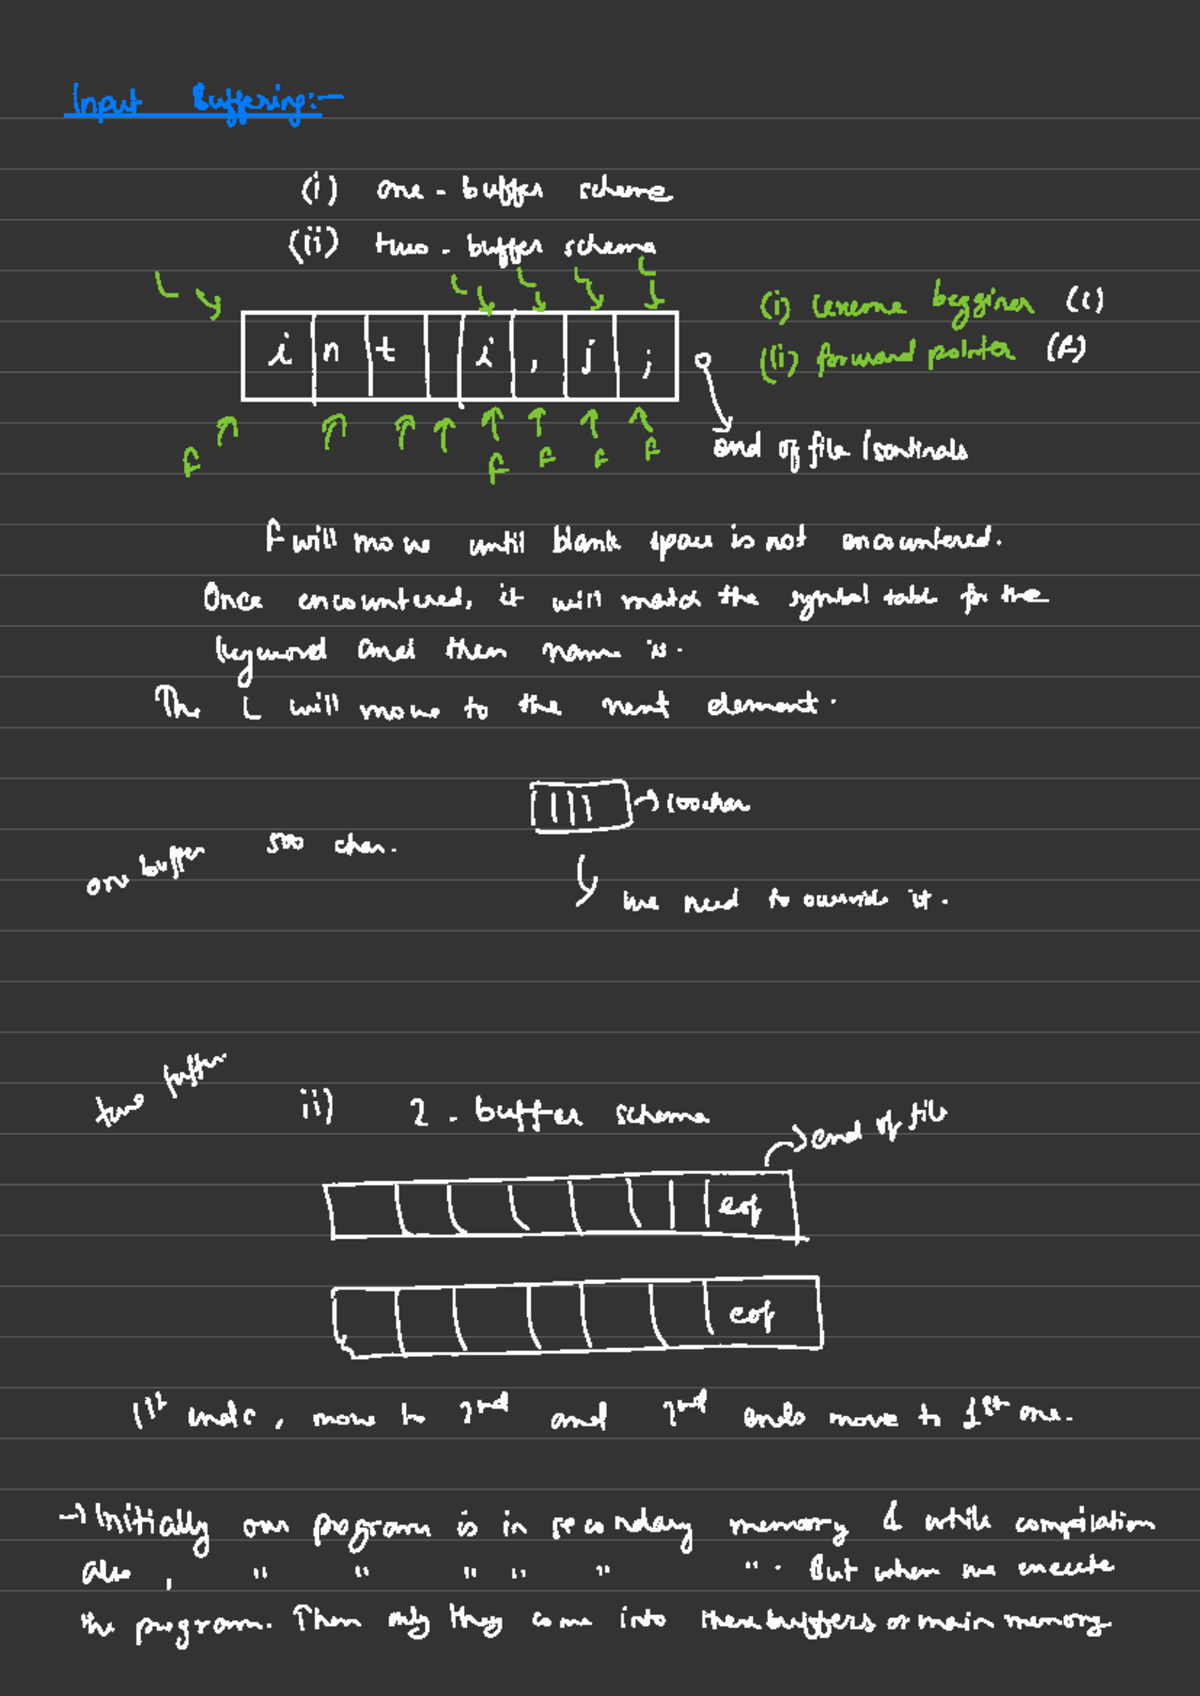 Input Buffering:-
(i) one - buffer scheme
(ii) two - buffer schema
L L L L L
i n t i , j ;
(i) lexeme begginer (L)
(ii) forward pointer (F)
F F F F F
end of file / sentinals
F will move until blank space is not encountered.
Once encountered, it will match the symbol table for the
keyword and then name is.
The L will move to the next element.
→ 100 char
one buffer 500 char.
we need to override it.
two buffer
ii) 2 - buffer schema
→ end of file
eof
eof
1st ends, move to 2nd and 2nd ends move to 1st one.
→ Initially our program is in secondary memory & while compilation
also, " " " " " ". But when we execute
the program. Then only they come into these buffers or main memory